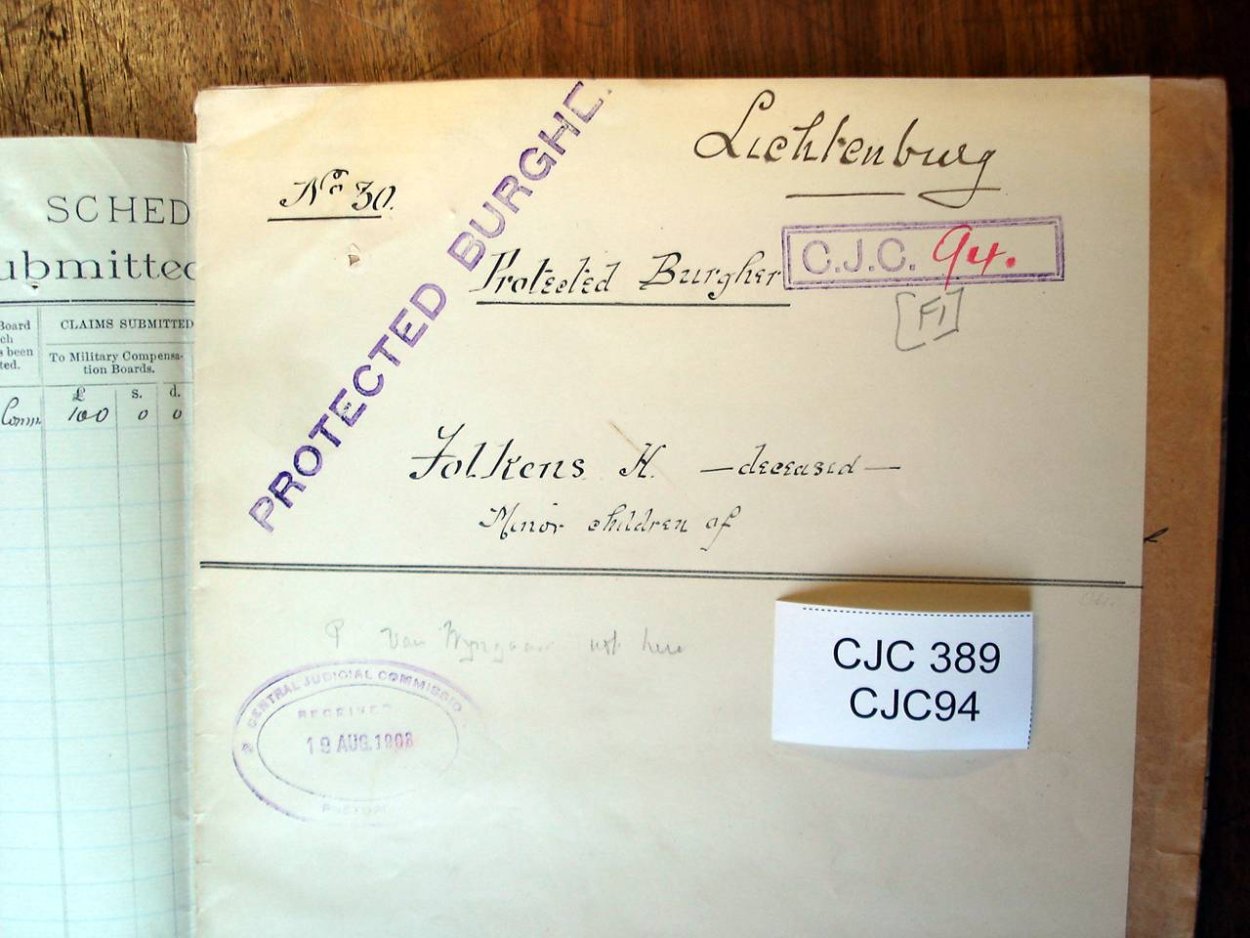 SCHED
ubmitted
Board
ch
s been
ted.
CLAIMS SUBMITTED
To Military Compensa-
tion Boards.
£ s. d.
Comm 100 0 0
Lichtenburg
No 30.
PROTECTED BURGHE
Protected Burgher
C.J.C. 94.
[F1]
Folkens H. — deceased —
Minor children of
P Van not here
CENTRAL JUDICIAL COMMISSIO
RECEIVED
19 AUG. 1903
CJC 389
CJC94